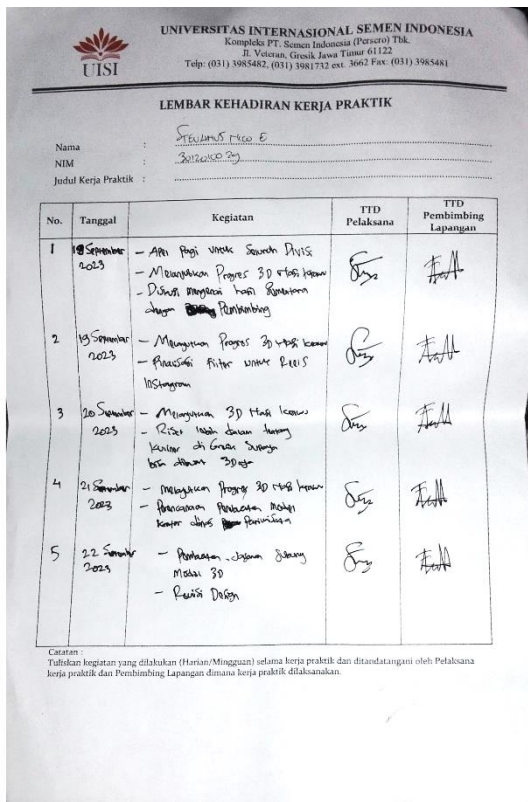 UNIVERSITAS INTERNASIONAL SEMEN INDONESIA
Kompleks PT. Semen Indonesia (Persero) Tbk.
Jl. Veteran, Gresik Jawa Timur 61122
Telp: (031) 3985482, (031) 3981732 ext. 3662 Fax: (031) 3985481
UISI
LEMBAR KEHADIRAN KERJA PRAKTIK
Nama :
NIM :
Judul Kerja Praktik :
No. Tanggal Kegiatan TTD Pelaksana TTD Pembimbing Lapangan
1 18 September 2023
- Apel Pagi untuk Seluruh Divisi
- Melanjutkan Progres 3D
- Diskusi mengenai hasil Sementara
dengan Pembimbing
2 19 September 2023
- Melanjutkan Progres 3D
- Finalisasi Filter untuk Reels
Instagram
3 20 September 2023
- Melanjutkan 3D
- Riset lebih dalam tentang
4 21 September 2023
- Melanjutkan Progres 3D
- Perencanaan Pembuatan Model
Kantor dinas Pariwisata
5 22 September 2023
- Pembuatan
Modul 3D
- Revisi Design
Catatan :
Tuliskan kegiatan yang dilakukan (Harian/Mingguan) selama kerja praktik dan ditandatangani oleh Pelaksana
kerja praktik dan Pembimbing Lapangan dimana kerja praktik dilaksanakan.